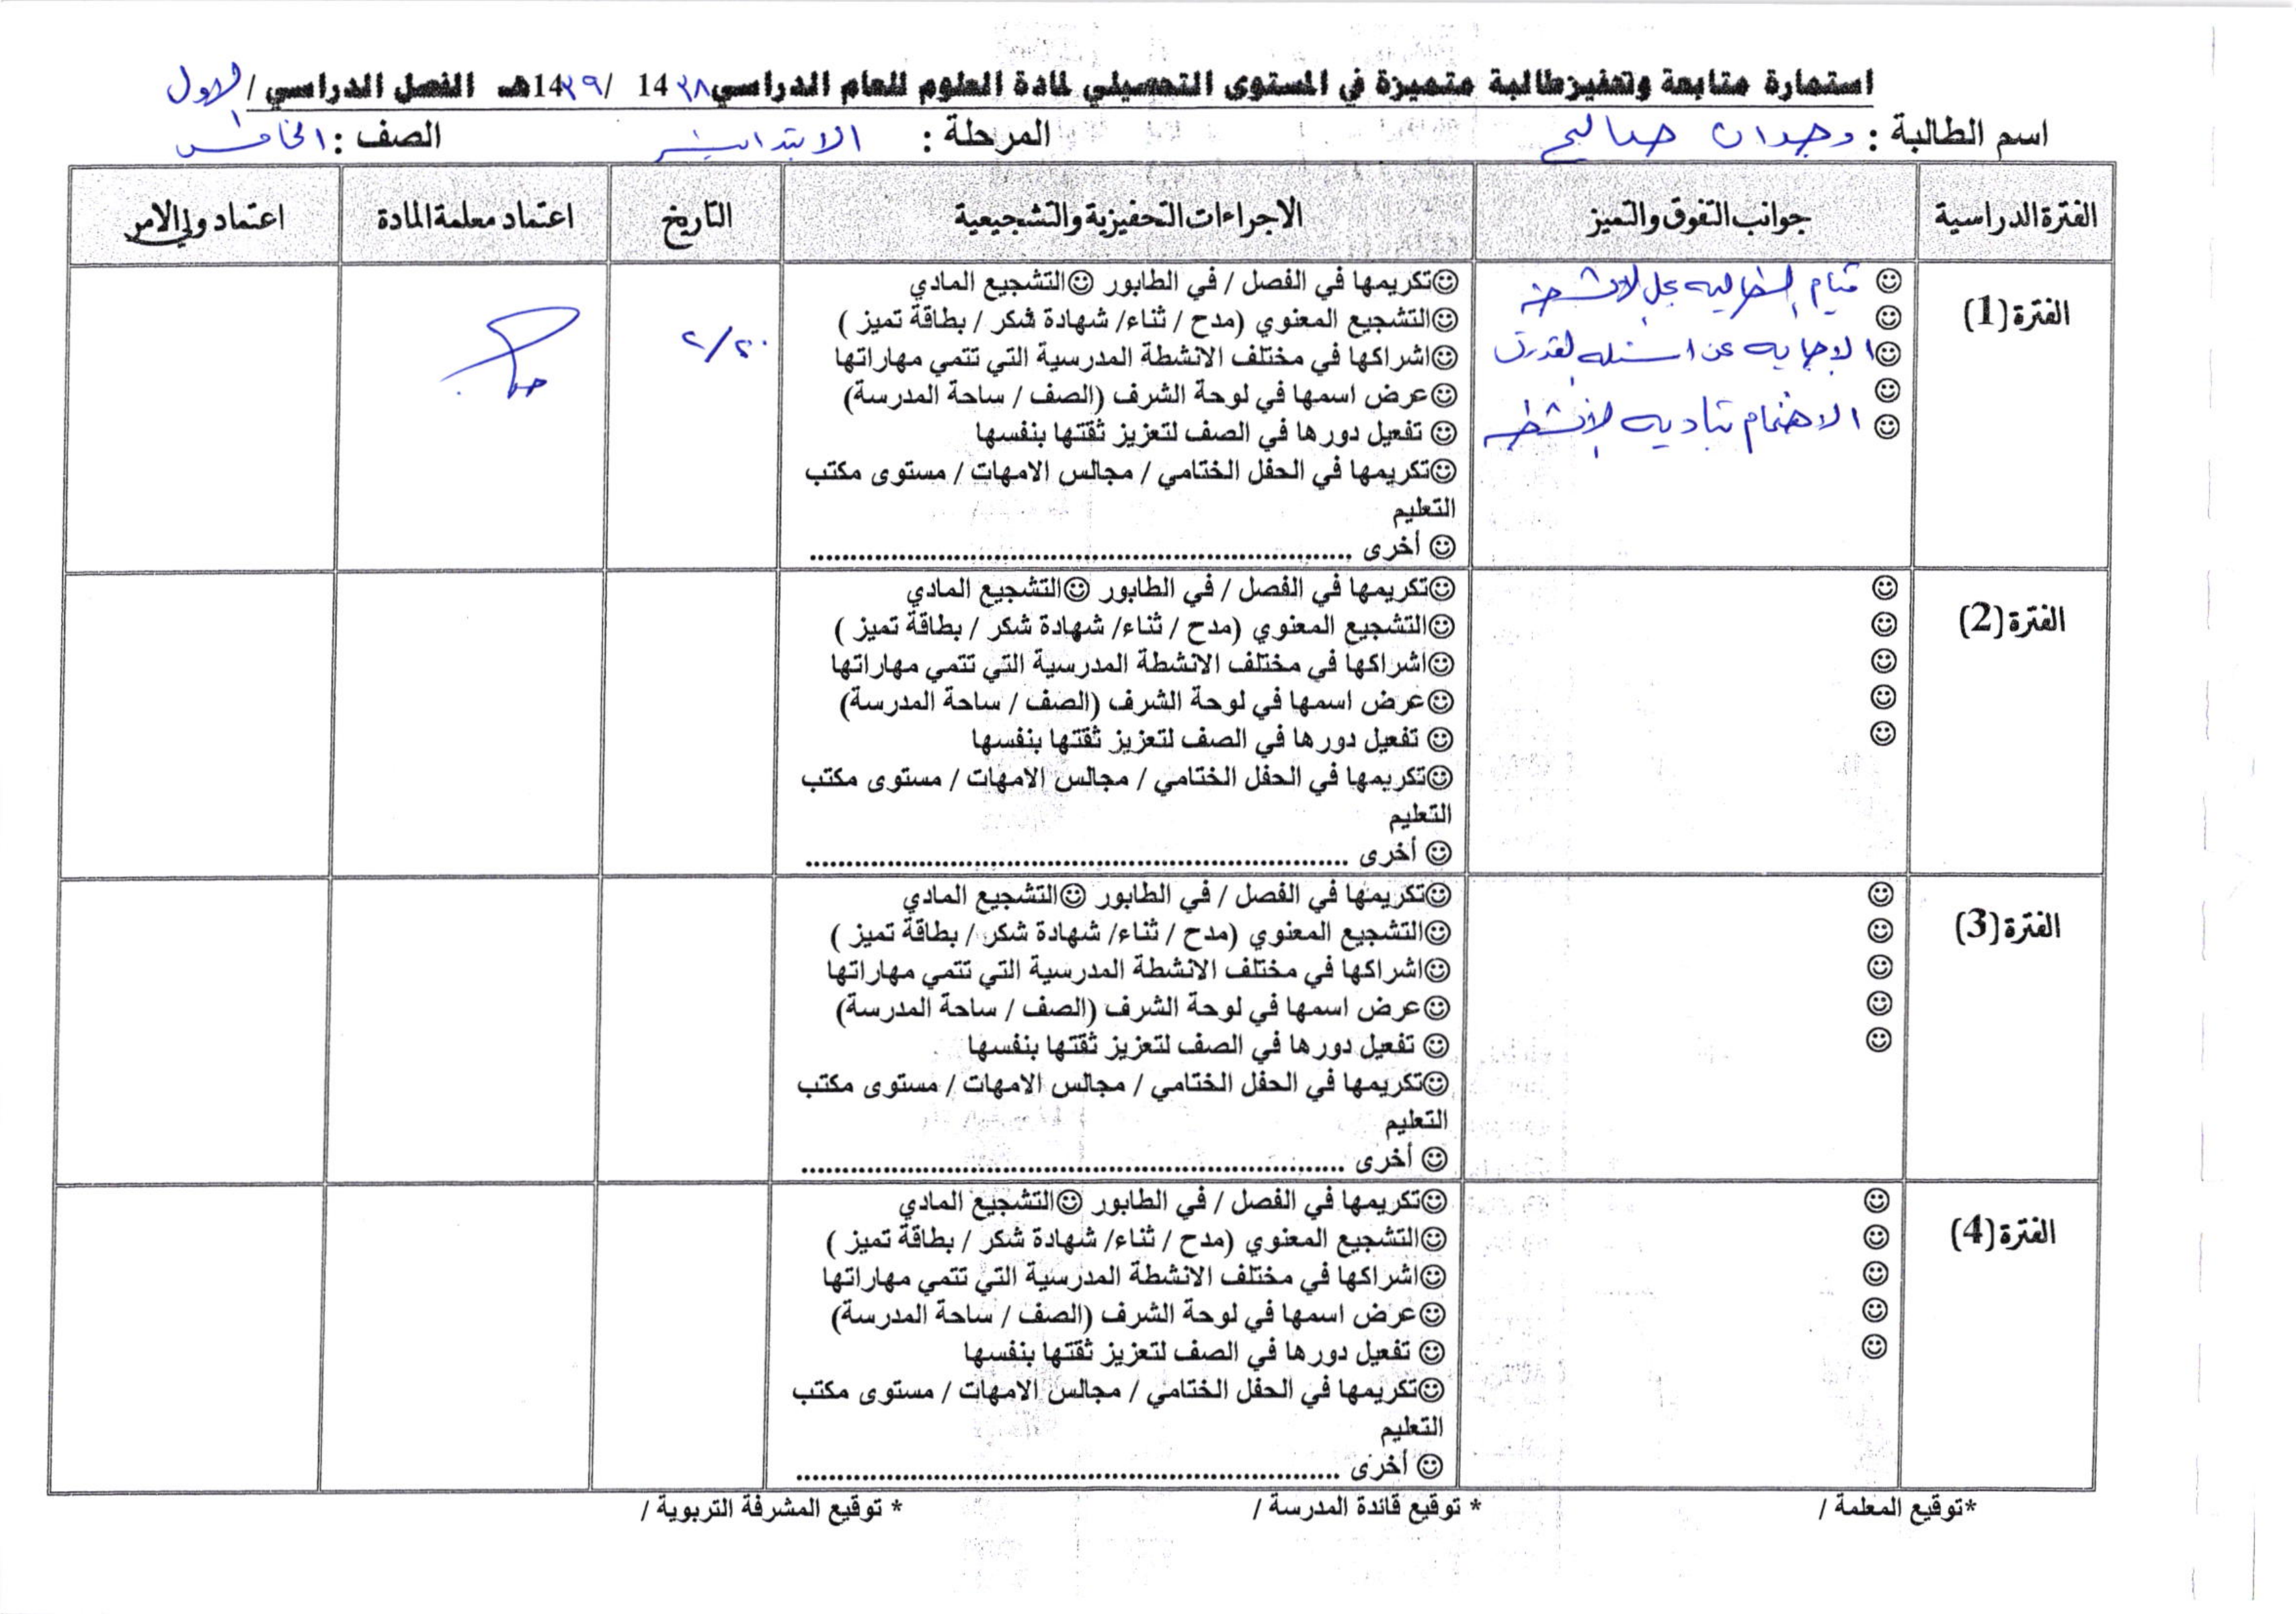 استمارة متابعة وتحفيز طالبة متميزة في المستوى التحصيلي لمادة العلوم للعام الدراسي ٣٨ 14 / ٣٩ 14هـ الفصل الدراسي / الاول
اسم الطالبة : وجدان صالح المرحلة : الابتدائية الصف : الخامس
الفترة الدراسية جوانب التفوق والتميز الاجراءات التحفيزية والتشجيعية التاريخ اعتماد معلمة المادة اعتماد ولي الامر
الفترة (1)
☺ قيام الطالبه بحل الانشطة
☺
☺ الاجابه عن اسئله
☺
☺ الاهتمام بتاديه الأنشطه
☺تكريمها في الفصل / في الطابور ☺التشجيع المادي
☺التشجيع المعنوي (مدح / ثناء/ شهادة شكر / بطاقة تميز )
☺اشراكها في مختلف الانشطة المدرسية التي تتمي مهاراتها
☺عرض اسمها في لوحة الشرف (الصف / ساحة المدرسة)
☺ تفعيل دورها في الصف لتعزيز ثقتها بنفسها
☺تكريمها في الحفل الختامي / مجالس الامهات / مستوى مكتب
التعليم
☺ أخرى ..................................................................
٢/٢٠
الفترة (2)
☺
☺
☺
☺
☺
☺تكريمها في الفصل / في الطابور ☺التشجيع المادي
☺التشجيع المعنوي (مدح / ثناء/ شهادة شكر / بطاقة تميز )
☺اشراكها في مختلف الانشطة المدرسية التي تتمي مهاراتها
☺عرض اسمها في لوحة الشرف (الصف / ساحة المدرسة)
☺ تفعيل دورها في الصف لتعزيز ثقتها بنفسها
☺تكريمها في الحفل الختامي / مجالس الامهات / مستوى مكتب
التعليم
☺ أخرى ..................................................................
الفترة (3)
☺
☺
☺
☺
☺
☺تكريمها في الفصل / في الطابور ☺التشجيع المادي
☺التشجيع المعنوي (مدح / ثناء/ شهادة شكر / بطاقة تميز )
☺اشراكها في مختلف الانشطة المدرسية التي تتمي مهاراتها
☺عرض اسمها في لوحة الشرف (الصف / ساحة المدرسة)
☺ تفعيل دورها في الصف لتعزيز ثقتها بنفسها
☺تكريمها في الحفل الختامي / مجالس الامهات / مستوى مكتب
التعليم
☺ أخرى ..................................................................
الفترة (4)
☺
☺
☺
☺
☺
☺تكريمها في الفصل / في الطابور ☺التشجيع المادي
☺التشجيع المعنوي (مدح / ثناء/ شهادة شكر / بطاقة تميز )
☺اشراكها في مختلف الانشطة المدرسية التي تتمي مهاراتها
☺عرض اسمها في لوحة الشرف (الصف / ساحة المدرسة)
☺ تفعيل دورها في الصف لتعزيز ثقتها بنفسها
☺تكريمها في الحفل الختامي / مجالس الامهات / مستوى مكتب
التعليم
☺ أخرى ..................................................................
*توقيع المعلمة / * توقيع قائدة المدرسة / * توقيع المشرفة التربوية /